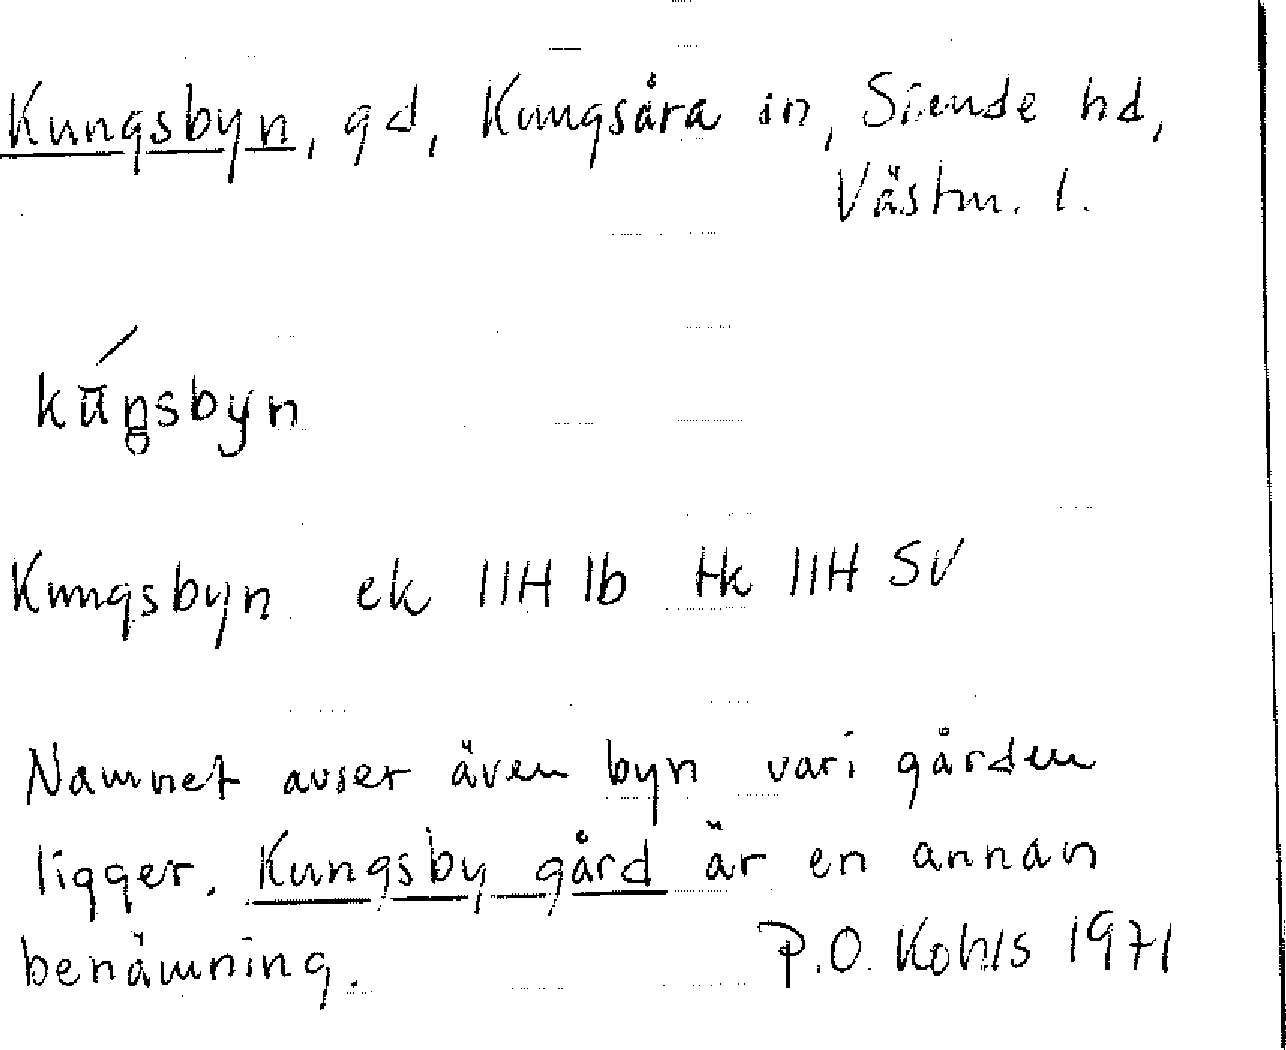 Kungsbyn, gd, Kungsåra sn, Siende hd,
Västm. l.
kūŋsbyn
Kungsbyn ek 11H 1b Hk 11H SV
Namnet avser även byn vari gården
ligger. Kungsby gård är en annan
benämning. P.O. Kohls 1971